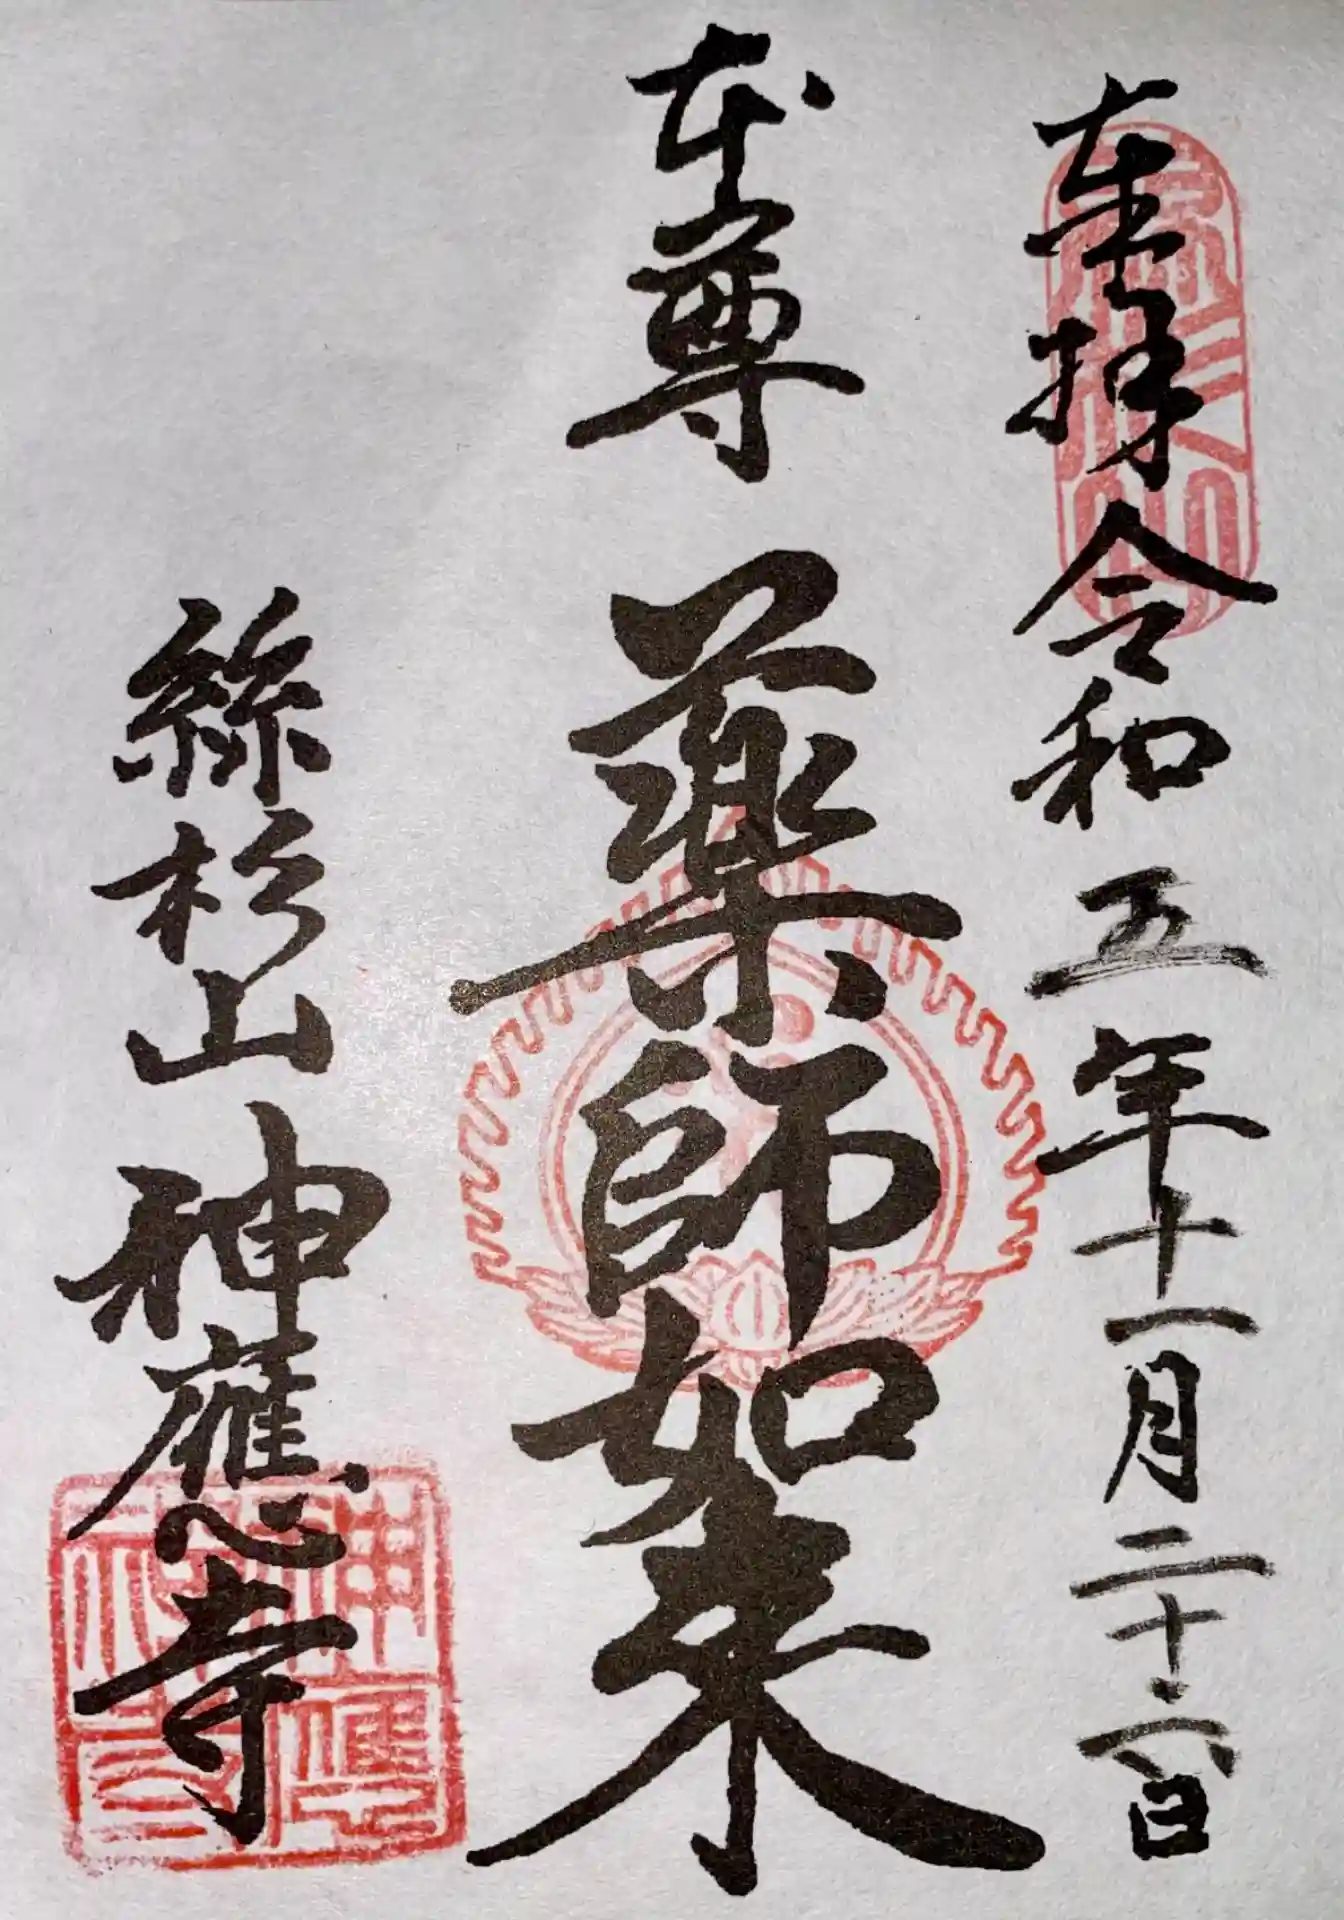 奉拝 令和五年十一月二十六日
本尊 薬師如来
絲杉山 神應寺
絲杉山